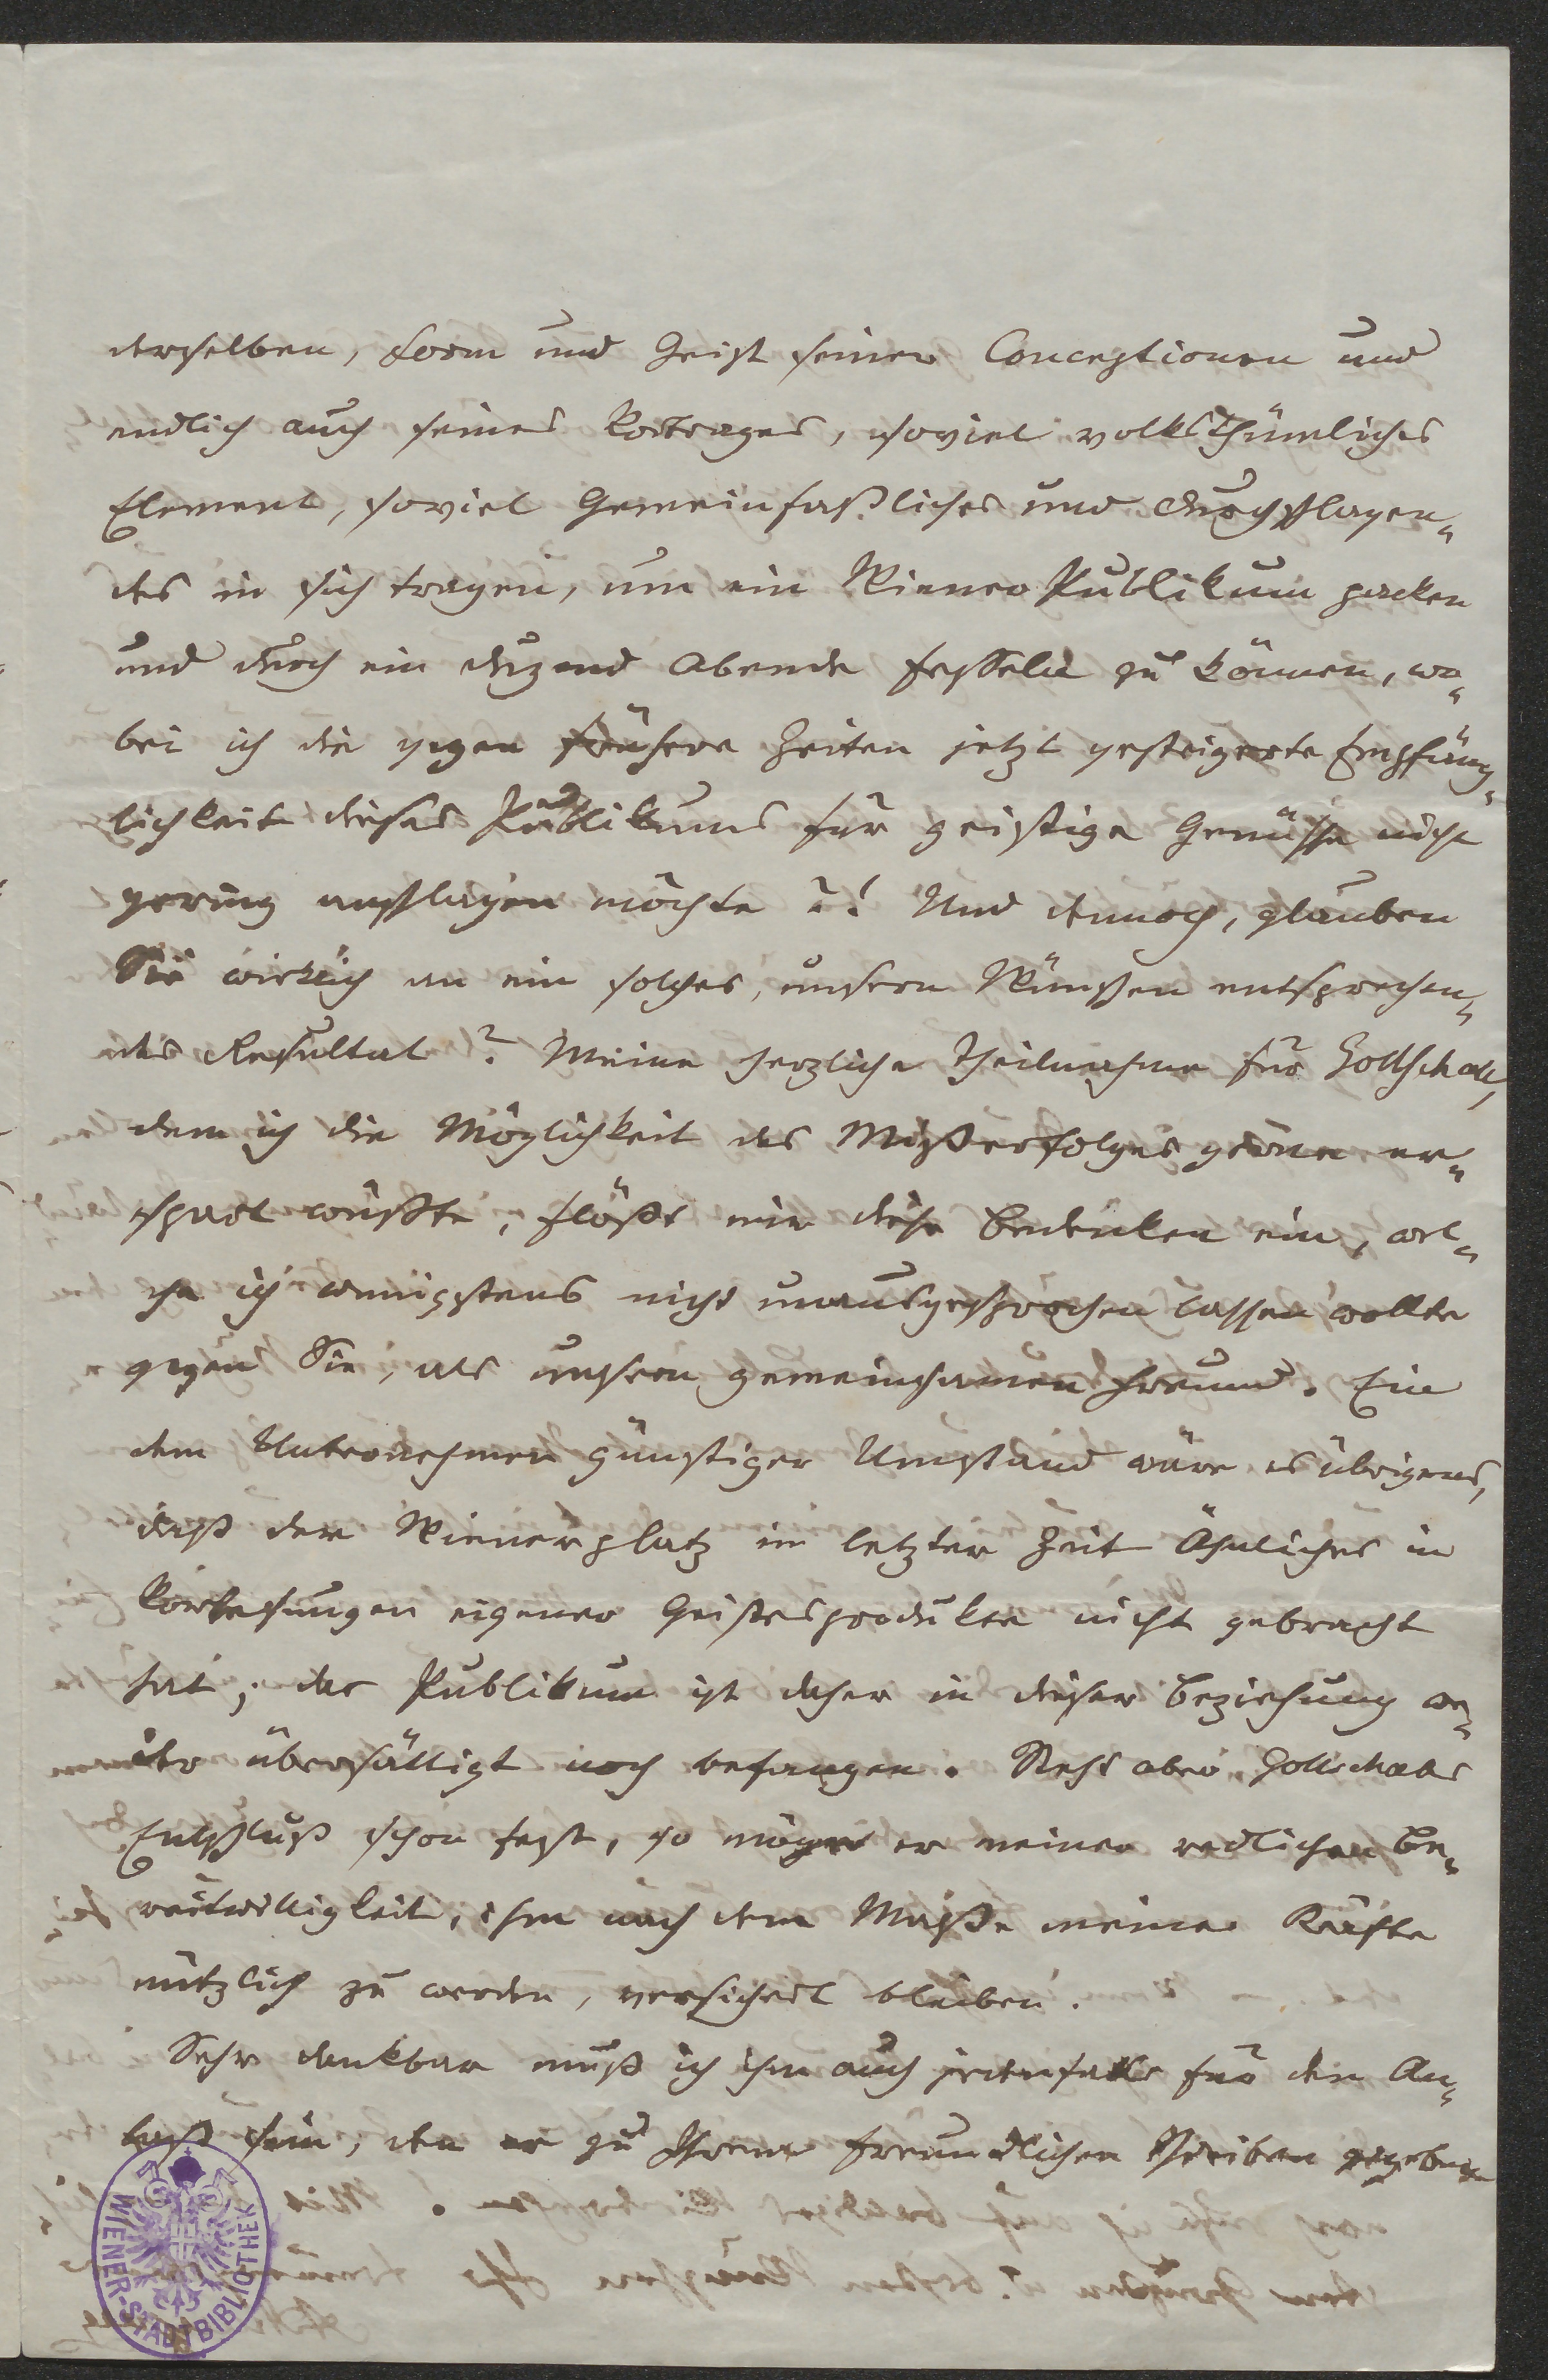 derselben, Form und Geist seiner Conceptionen und
endlich auch seines Vortrages, soviel volksthümliches
Element, soviel Gemeinfaßliches und Durchschlagen-
des in sich tragen, um ein Wiener Publikum packen
und durch ein duzend Abende fesseln zu können, wo-
bei ich die gegen frühere Zeiten jetzt gesteigerte Empfäng-
lichkeit dieses Publikums für geistige Genüsse nicht
gering anschlagen möchte ?! Und dennoch, glauben
Sie wirklich an ein solches, unsern Wünschen entsprechen-
des Resultat ? Meine herzliche Theilnahme für Gottschall,
dem ich die Möglichkeit des Mißerfolges gerne er-
spart wüßte, flößt mir diese Bedenken ein, wel-
che ich wenigstens nicht unausgesprochen lassen wollte
gegen Sie, als unsern gemeinsamen Freund. Ein
dem Unternehmen günstiger Umstand wäre es übrigens,
daß der Wienerplatz in letzter Zeit Ähnliches in
Vorlesungen eigener Geistesprodukte nicht gebracht
hat; das Publikum ist daher in dieser Beziehung we-
der übersättigt noch befangen. Steht aber Gottschalls
Entschluß schon fest, so möge er meiner redlichen Be-
reitwilligkeit, ihm nach dem Maße meiner Kräfte
nützlich zu werden, versichert bleiben.
Sehr dankbar muß ich ihm auch jedenfalls für den An-
laß sein, den er zu Ihrem freundlichen Schreiben gegeben
WIENER-STADTBIBLIOTHEK